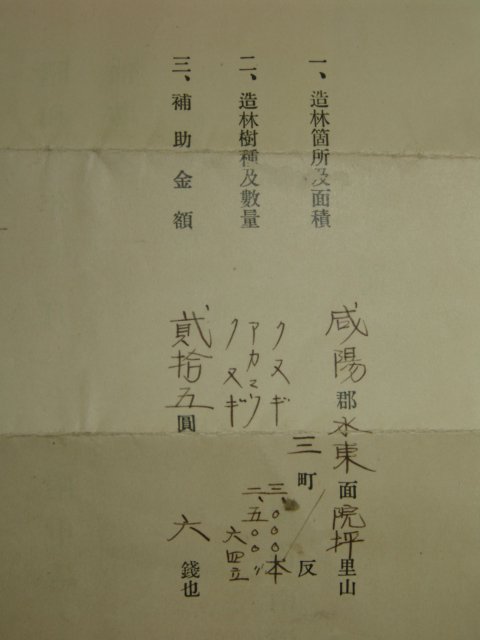 一、造林箇所及面積
咸陽郡水東面院坪里山
三町反
二、造林樹種及數量
クヌギ 三、〇〇〇本
アカマツ 二、五〇〇〃
クヌギ 六四立
三、補助金額
貳拾五圓六錢也